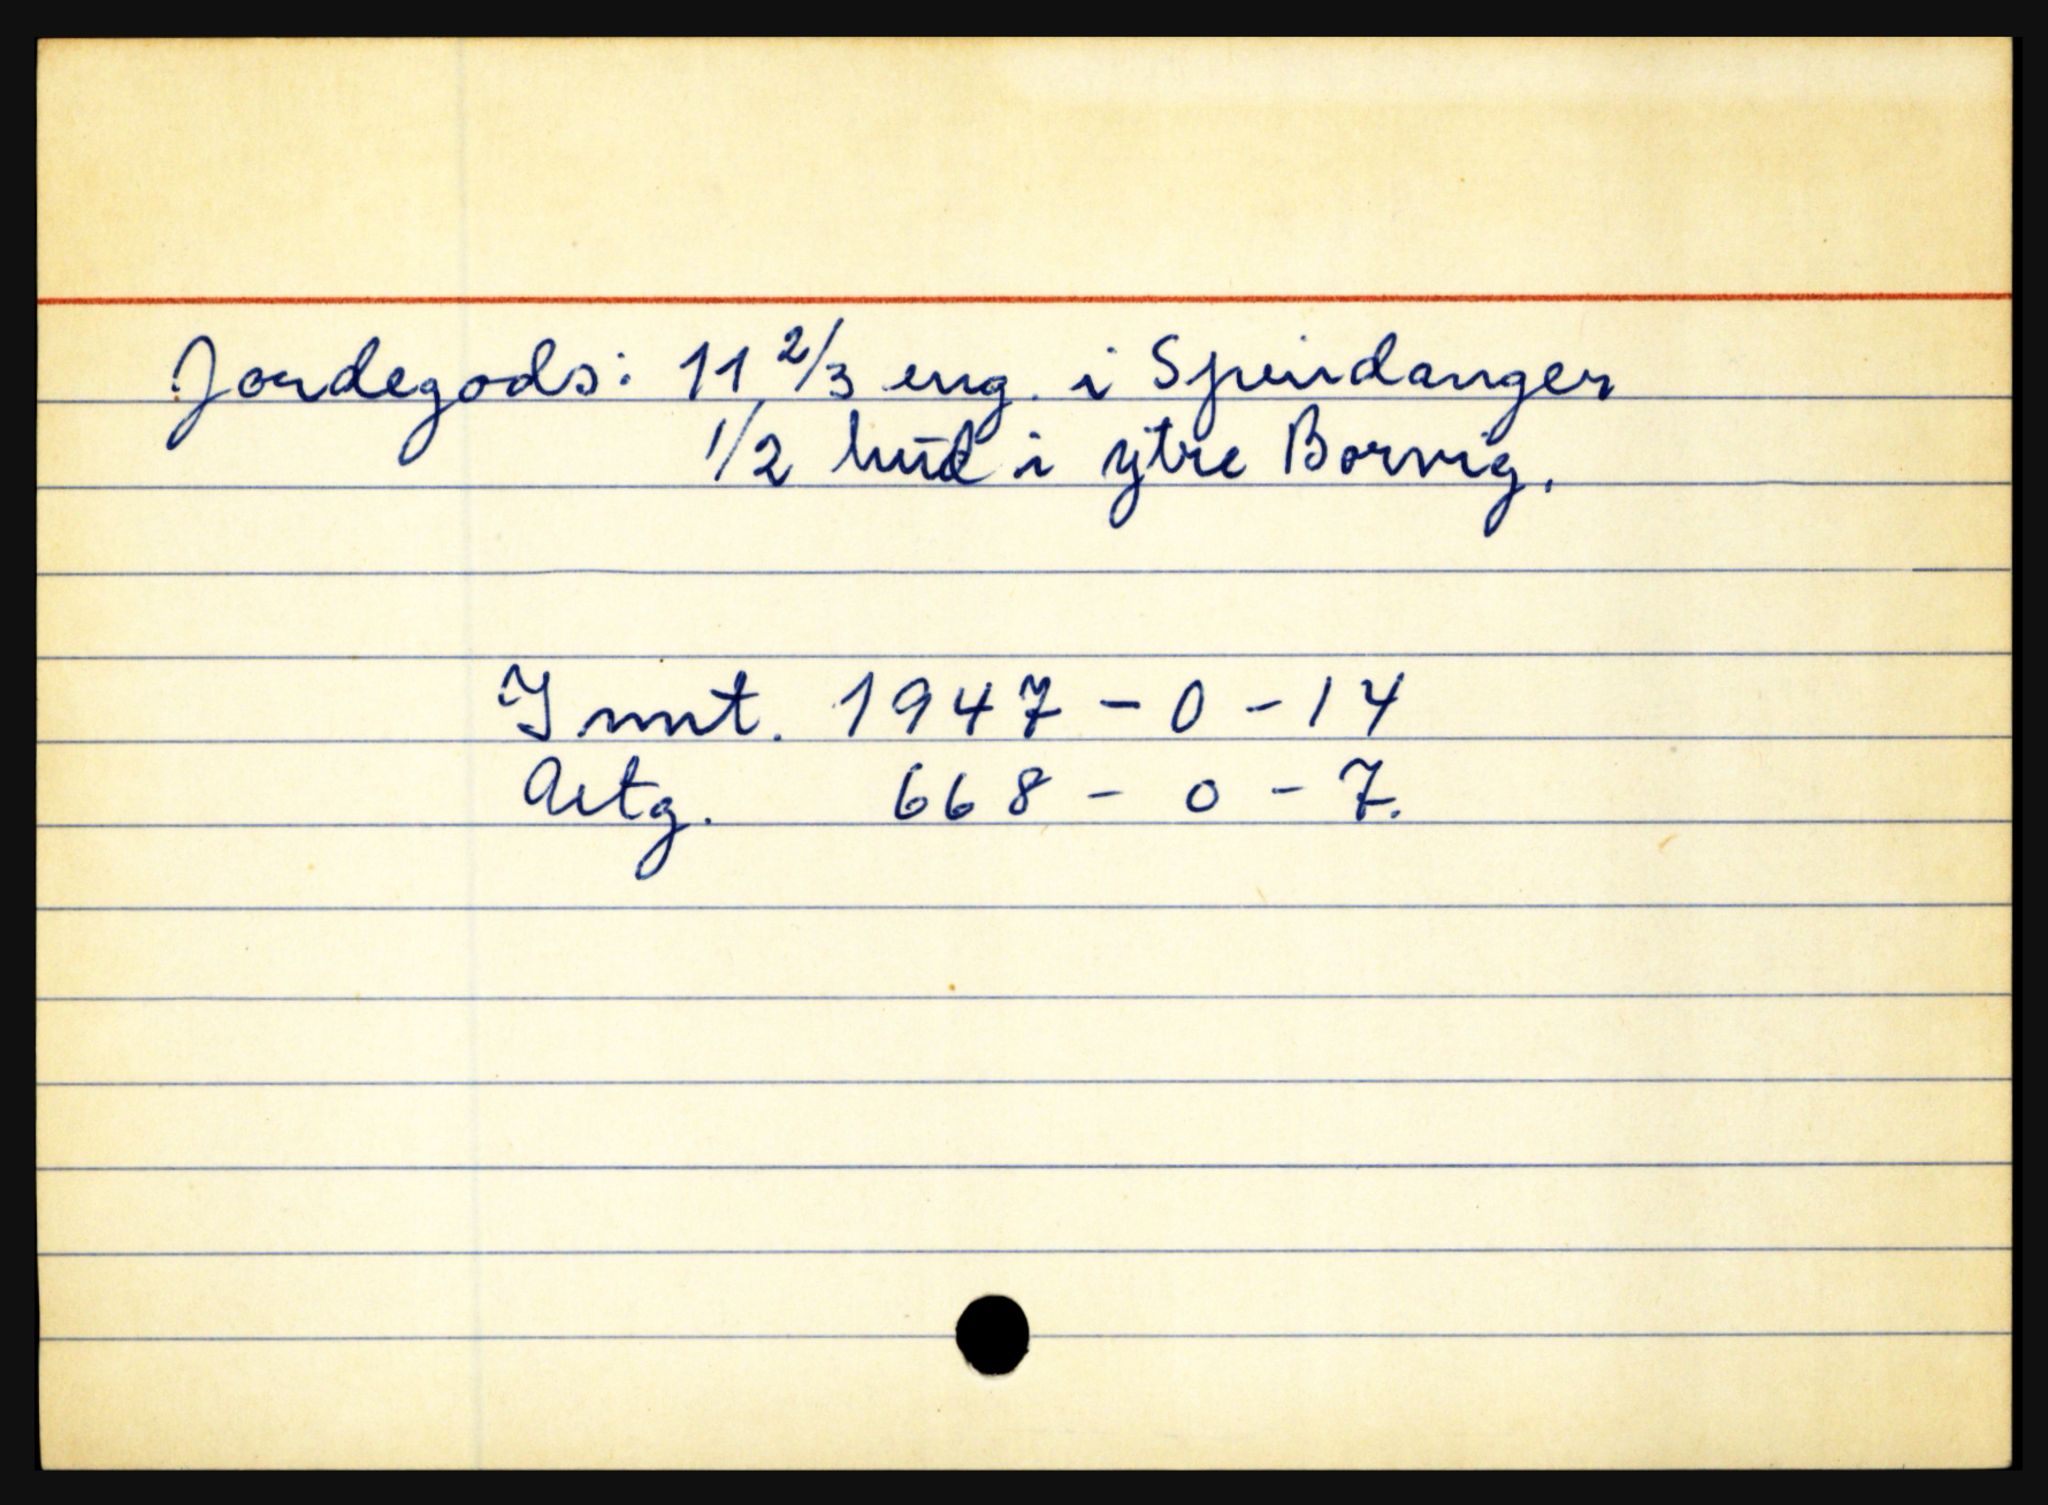 Jordegods: 11 2/3 eng. i Speidanger
1/2 hud i ytre Borvig.
Innt. 1947 - 0 - 14
Avtg. 668 - 0 - 7.